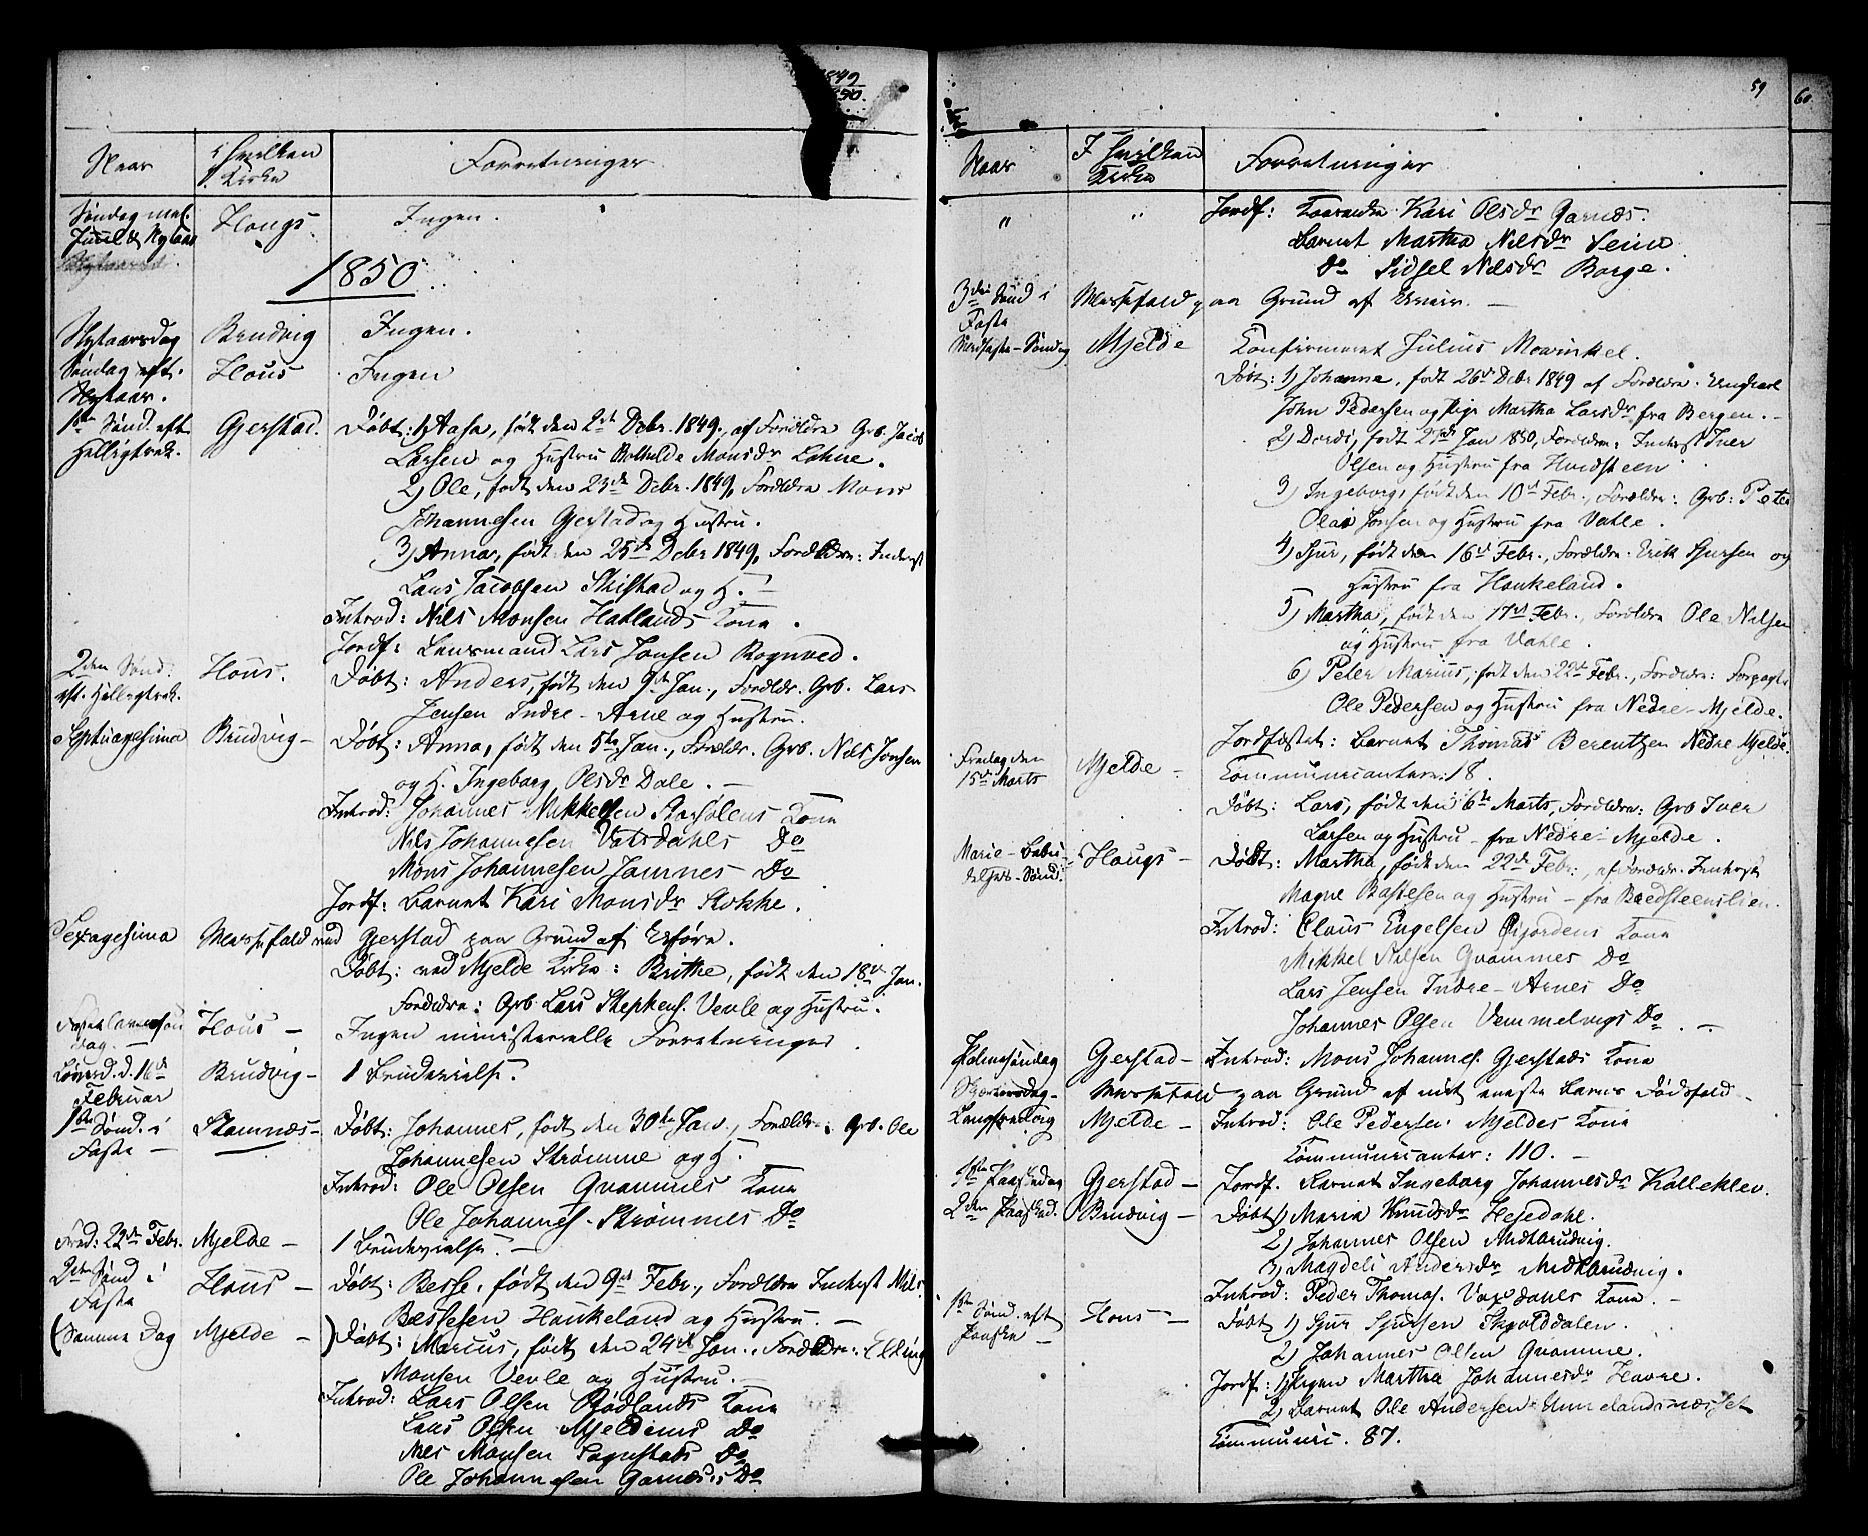 1849
50.
Naar
I hvilken Kirke
Forretninger
Søndag mel. Juul & Nytaar
Hougs
Ingen.
1850
Nytaarsdag
Brudvig
Ingen.
Søndag eft. Nytaar.
Hous
Ingen
1ste Sønd. eft Helligtrek.
Gjerstad.
Døbt: 1) Aasa, født den 2dt Debr. 1849., af Forældre Grb. Jacob
Larsen og Hustru Bothilde Monsdr Lohne.
2) Ole, født den 23de Debr. 1849, Forældre Mons
Johannesen Gjerstad og Hustru.
3) Anna, født den 25de Debr 1849, Forældre: Inderst
Lars Jacobsen Skistad og H. –
Introd: Nils Monsen Hatlands Kone.
Jordf: Lensmand Lars Jonsen Rognved.
2den Sønd. eft. Helligtrek.
Hous.
Døbt: Anders, født den 9de Jan., Forældr. Grb. Lars
Jensen Indre-Arne og Hustru.
Septuagesima
Brudvig –
Døbt: Anna, født den 5te Jan., Forældr. Grb. Nils Jonsen
og H. Ingeborg Olsdr Dale. –
Introd: Johannes Mikkelsen Kone
Nils Johannesen Vatsdahls Do
Mons Johannesen Jamnes Do
Jordf: Barnet Kari Monsdr Stokke.
Sexagesima
Messefald ved Gjerstad paa Grund af Uføre.
Døbt: ved Mjelde Kirke: Brithe, født den 18de Jan.
Forældre: Grb. Lars Stephens. Vevle og Hustru.
Fastelavnssøndag. –
Hous –
Ingen ministerielle Forretninger.
Løverd. d. 16de Februar
Brudvig –
1 Brudevielse.
1ste Sønd. i Faste –
Stamnæs –
Døbt: Johannes, født den 30te Jan., Forældre: Grb. Ole
Johannesen Strømme og H.
Introd: Ole Olsen Qvammes Kone
Ole Johannes. Strømmes Do
Fred: 22de Febr.
Mjelde –
1 Brudevielse. –
2den Sønd i Faste
Hous –
Døbt: Besse, født den 9de Febr., Forældre Inderst Nils
Bessesen Haukeland og Hustru. –
(Samme Dag
Mjelde –
) Døbt: Marcus, født den 24de Jan., Forældre: Elling
Monsen Vevle og Hustru. –
Introd: Lars Olsen Rødlands Kone
Lars Olsen Mjeldems Do
Nils Monsen Do
Ole Johannesen Garnæs's Do
59
60
Naar
I hvilken Kirke
Forretninger
"
"
Jordf: Kari Olsdr Garnæs.
Barnet Martha Nilsdr Seim
Do Sidsel Nilsdr Borge.
3die Sønd i Faste
Messefald paa Grund af Uveir. –
Midfaste-Søndag
Mjelde
Confirmeret Julius Mowinkel.
Døbt: 1) Johanne, født 26de Debr 1849 af Forældre. Ungkarl
John Pedersen og Pige Martha Larsdr fra Bergen. –
2) Dordi, født 27de Jan 1850, Forældre: Inderst Iver
Olsen og Hustru fra Hvidsteen
3) Ingeborg, født den 10de Febr., Forældre: Grb: Peter
Olai Jonsen og Hustru fra Vahle.
4) Sjur, født den 16de Febr., Forældre. Erik Sjursen og
Hustru fra Haukeland.
5) Martha, født den 17de Febr., Forældre Ole Nilsen
og Hustru fra Vahle.
6) Peter Marius, født den 22de Febr., Forældre: Forpagter
Ole Pedersen og Hustru fra Nedre-Mjelde.
Jordfæstet: Barnet Thomas Berentsen Nedre Mjelde.
Fredag den 15de Marts
Mjelde –
Communicanter: 18.
Døbt: Lars, født den 6te Marts, Forældre: Grb Iver
Larsen og Hustru fra Nedre-Mjelde.
Marie-Bebudelses-Sønd.
Hougs –
Døbt: Martha, født den 22de Febr., af Forældr. Inderst
Magne Bottesen og Hustru – fra Bredsteenslien.
Introd: Claus Engelsen Kone
Mikkel Nilsen Qvammes Do
Lars Jensen Indre-Arnes Do
Johannes Olsen Vemmelvigs Do. –
Palmesøndag
Gjerstad –
Introd: Mons Johannes. Gjerstads Kone
Skjærtorsdag –
Messefald paa Grund af mit eneste Barns Dødsfald –
Langfredag
Mjelde –
Introd: Ole Pedersen Mjeldes Kone
Communicanter: 110. –
1ste Paaskedag
Gjerstad –
Jordf. Barnet Ingeborg Johannesdr Kalleklev.
2den Paasked.
Brudvig –
Døbt 1) Maria Knudsdr Hesjedahl.
2) Johannes Olsen Midtbrudvig.
3) Magdeli Andersdr Midtbrudvig.
Introd: Peder Thomas. Vaxdahls Kone. –
1ste Sønd. eft Paaske –
Hous –
Døbt 1) Sjur Sjursen Skjolddalen.
2) Johannes Olsen Qvamme.
Jordf: 1) Pigen Martha Johannesdr Havre.
2) Barnet Ole Andersen Unnelandsnæsset
Communic. 87.